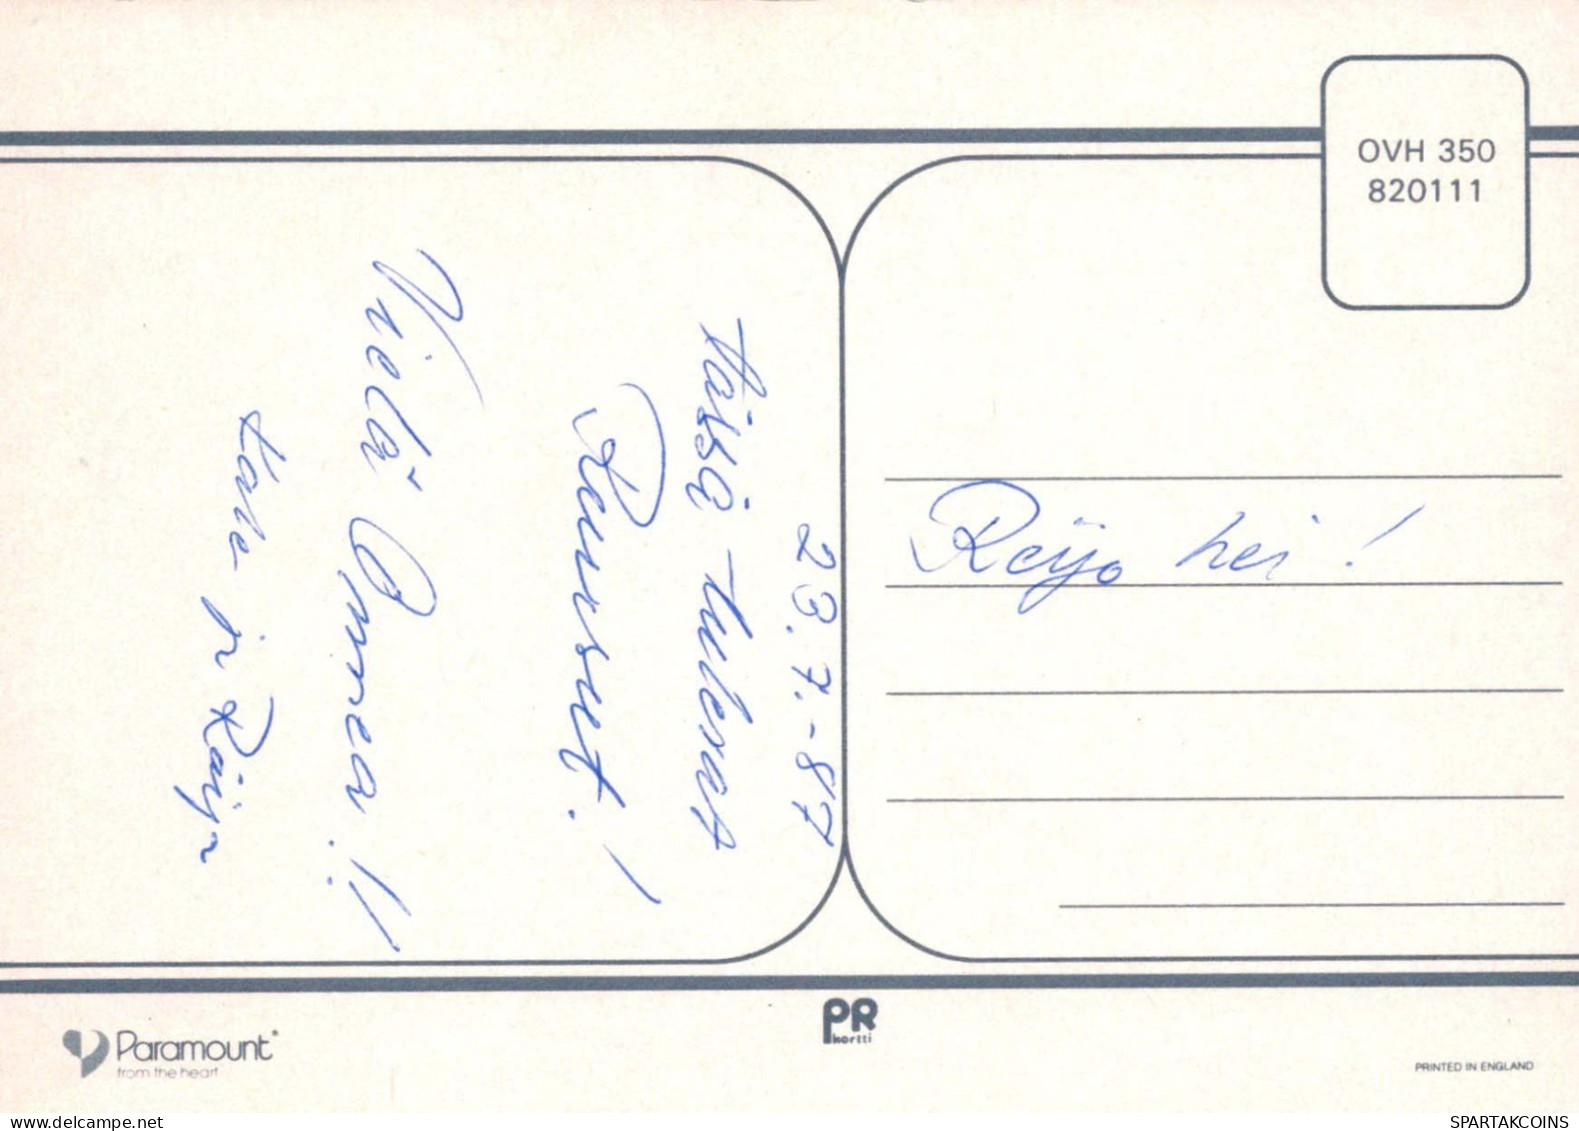 OVH 350
820111
Reijo hei!
23.7.-87
tässä tulevat
Reunset!
Vielä Onnea!!
Kalle ja Raija
Paramount
from the heart
PR
kortti
PRINTED IN ENGLAND
delcampe.net
SPARTAKCOINS